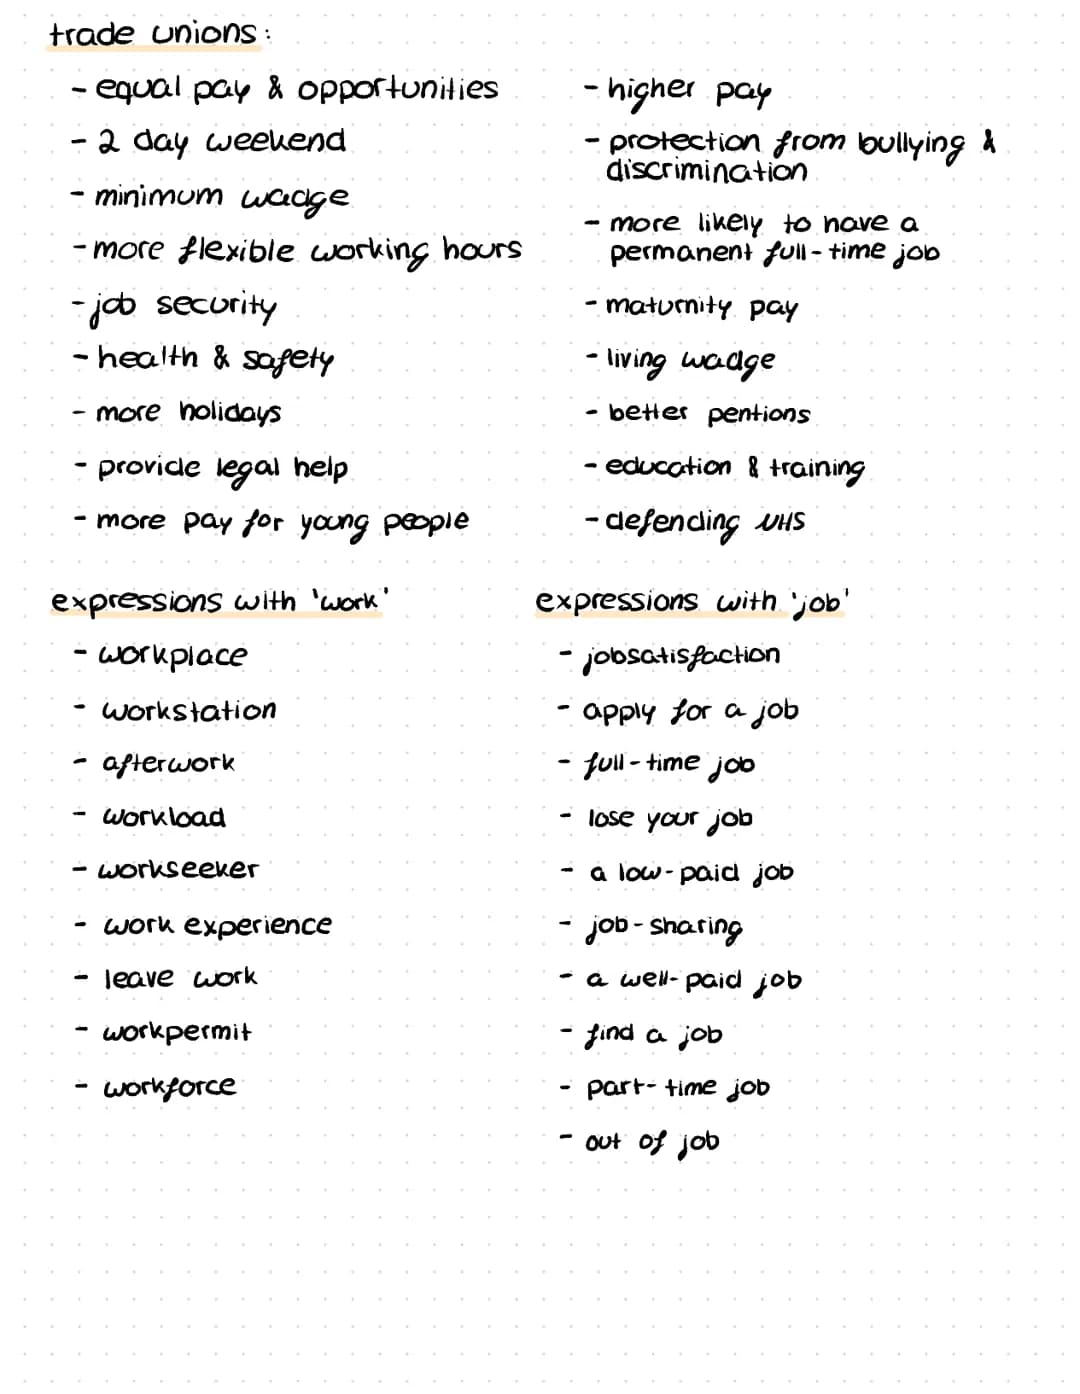 trade unions:
- equal pay & opportunities
- 2 day weekend
- minimum wadge
- more flexible working hours
- job security
- health & safety
- more holidays
- provide legal help
- more pay for young people
- higher pay
- protection from bullying &
discrimination
- more likely to have a
permanent full-time job
- maturnity pay
- living wadge
- better pentions
- education & training
- defending NHS
expressions with 'work'
- workplace
- workstation
- afterwork
- workload
- workseeker
- work experience
- leave work
- workpermit
- workforce
expressions with 'job'
- jobsatisfaction
- apply for a job
- full-time job
- lose your job
- a low-paid job
- job-sharing
- a well-paid job
- find a job
- part-time job
- out of job